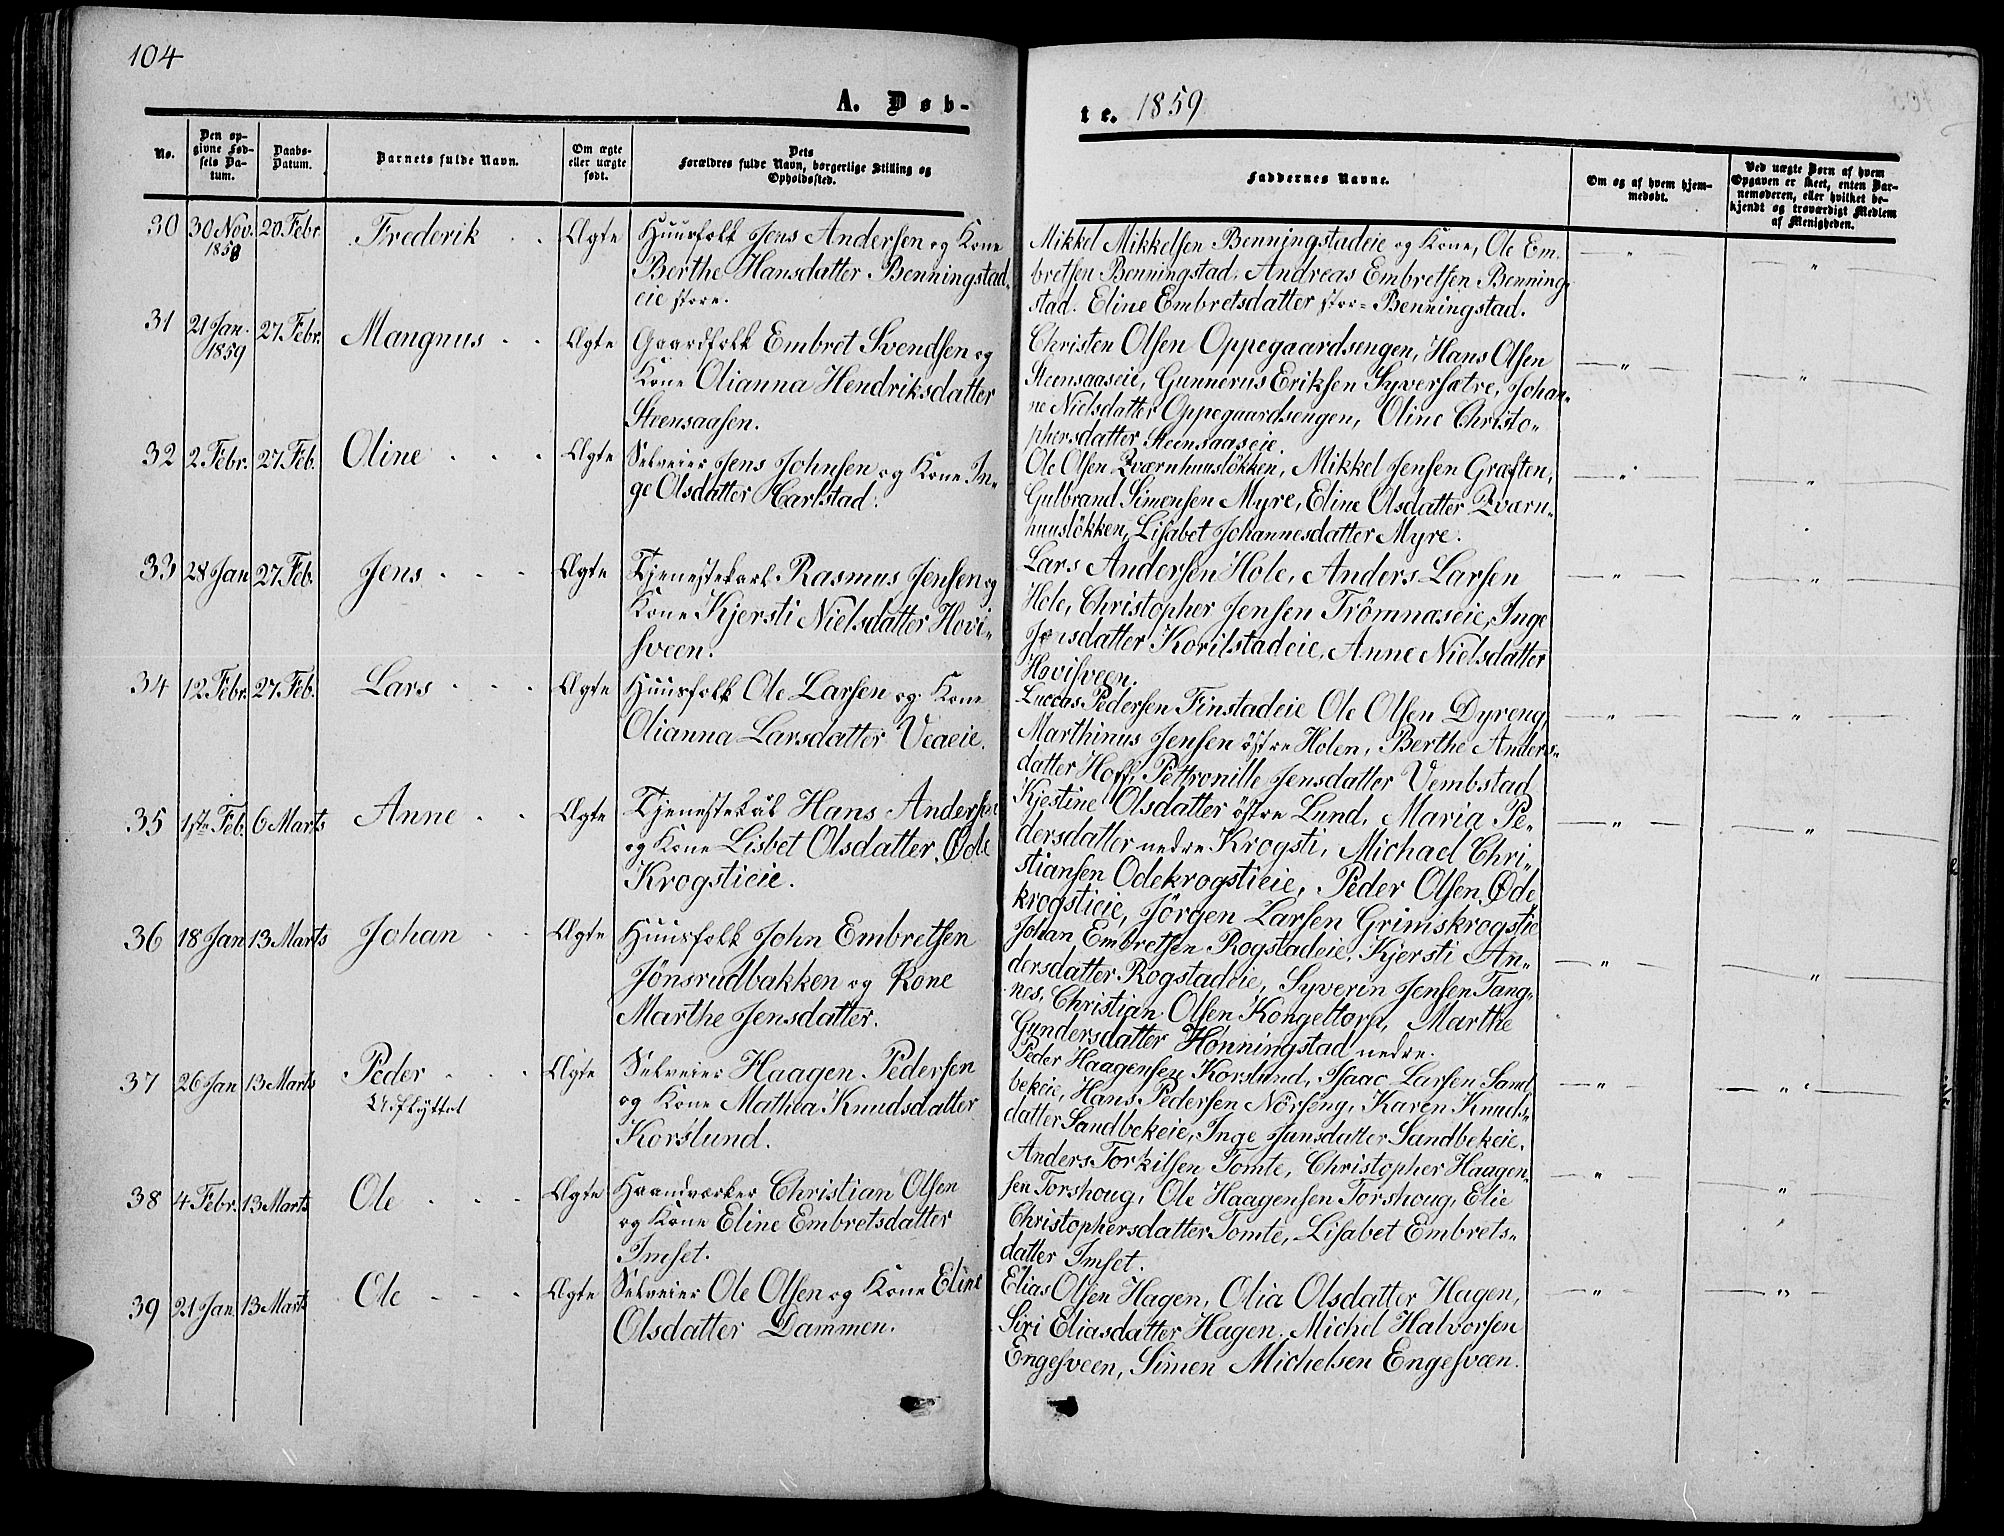 104
A. Døb-
te. 1859
No.
Den op-
givne Fød-
sels Da-
tum.
Daabs-
Datum.
Barnets fulde Navn.
Om ægte
eller uægte
født.
Dets
Forældres fulde Navn, borgerlige Stilling og
Opholdssted.
Faddernes Navne.
Om og af hvem hjem-
medøbt.
Ved uægte Børn af hvem
Opgaven er skeet, enten Bar-
nemoderen, eller hvilket be-
kjendt og troværdigt Medlem
af Menigheden.
30 30 Nov. 20 Febr. Frederik Ægte Huusfolk Jens Andersen og Kone
1858
Berthe Hansdatter Benningstad-
eie store.
Mikkel Mikkelsen Benningstadeie og Kone, Ole Em-
bretsen Benningstad. Andreas Embretsen Benning-
stad. Eline Embretsdatter stor=Benningstad.
31 21 Jan. 27 Febr. Mangnus Ægte Gaardfolk Embret Svendsen og
1859
Kone Olianna Hendriksdatter
Steensaasen.
Christen Olsen Oppegaardsengen, Hans Olsen
Steensaaseie, Gunnerus Eriksen Syversætre, Johan-
ne Nielsdatter Oppegaardsengen, Oline Christo-
phersdatter Steensaaseie.
32 2 Febr. 27 Feb. Oline Ægte Selveier Jens Johnsen og Kone In-
ge Olsdatter Carlstad.
Ole Olsen Qværnhuusløkken, Mikkel Jensen Græften,
Gulbrand Simensen Myre, Eline Olsdatter Qværn-
huusløkken, Lisabet Johannesdatter Myre.
33 28 Jan 27 Feb. Jens Ægte Tjenestekarl Rasmus Jensen og
Kone Kjersti Nielsdatter Hovi-
sveen.
Lars Andersen Hole, Anders Larsen
Hole, Christopher Jensen Trömnæseie, Inge
Jensdatter Korilstadeie, Anne Nielsdatter
Hovisveen.
34 12 Febr. 27 Feb. Lars Ægte Huusfolk Ole Larsen og Kone
Olianna Larsdatter Veaeie.
Luccas Pedersen Finstadeie Ole Olsen Dyreng,
Marthinus Jensen östre Holen, Berthe Anders-
datter Hoff, Pettronille Jensdatter Vembstad
35 1ste Feb. 6 Marts Anne Ægte Tjenestekarl Hans Andersen
og Kone Lisbet Olsdatter Øde
Krogstieie.
Kjestine Olsdatter östre Lund, Maria Pe-
dersdatter nedre Krogsti, Michael Chri-
stiansen Odekrogstieie, Peder Olsen Øde
krogstieie, Jörgen Larsen Grimskrogstie
36 18 Jan 13 Marts Johan Ægte Huusfolk John Embretsen
Jönsrudbakken og Kone
Marthe Jensdatter.
Johan Embretsen Rogstadeie, Kjersti An-
dersdatter Rogstadeie, Syverin Jensen Tang-
nes, Christian Olsen Kongeltorp, Marthe
Gundersdatter Hönningstad nedre.
37 26 Jan 13 Marts Peder Ægte Selveier Haagen Pedersen
Udflyttet
og Kone Mathea Knudsdatter
Korslund.
Peder Haagensen Korslund, Isaac Larsen Sand
bekeie, Hans Pedersen Nörseng, Karen Knuds-
datter Sandbekeie, Inge Jansdatter Sandbekeie.
38 4 Febr. 13 Marts Ole Ægte Haandværker Christian Olsen
og Kone Eline Embretsdatter
Imset.
Anders Torkilsen Tomte, Christopher Haagen-
sen Torshoug, Ole Haagensen Torshoug, Elie
Christophersdatter Tomte, Lisabet Embrets-
datter Imset.
39 21 Jan 13 Marts Ole Ægte Selveier Ole Olsen og Kone Eline
Olsdatter Dammen.
Elias Olsen Hagen, Olia Olsdatter Hagen,
Siri Eliasdatter Hagen. Michel Halvorsen
Engesveen, Simen Michelsen Engesvæn.